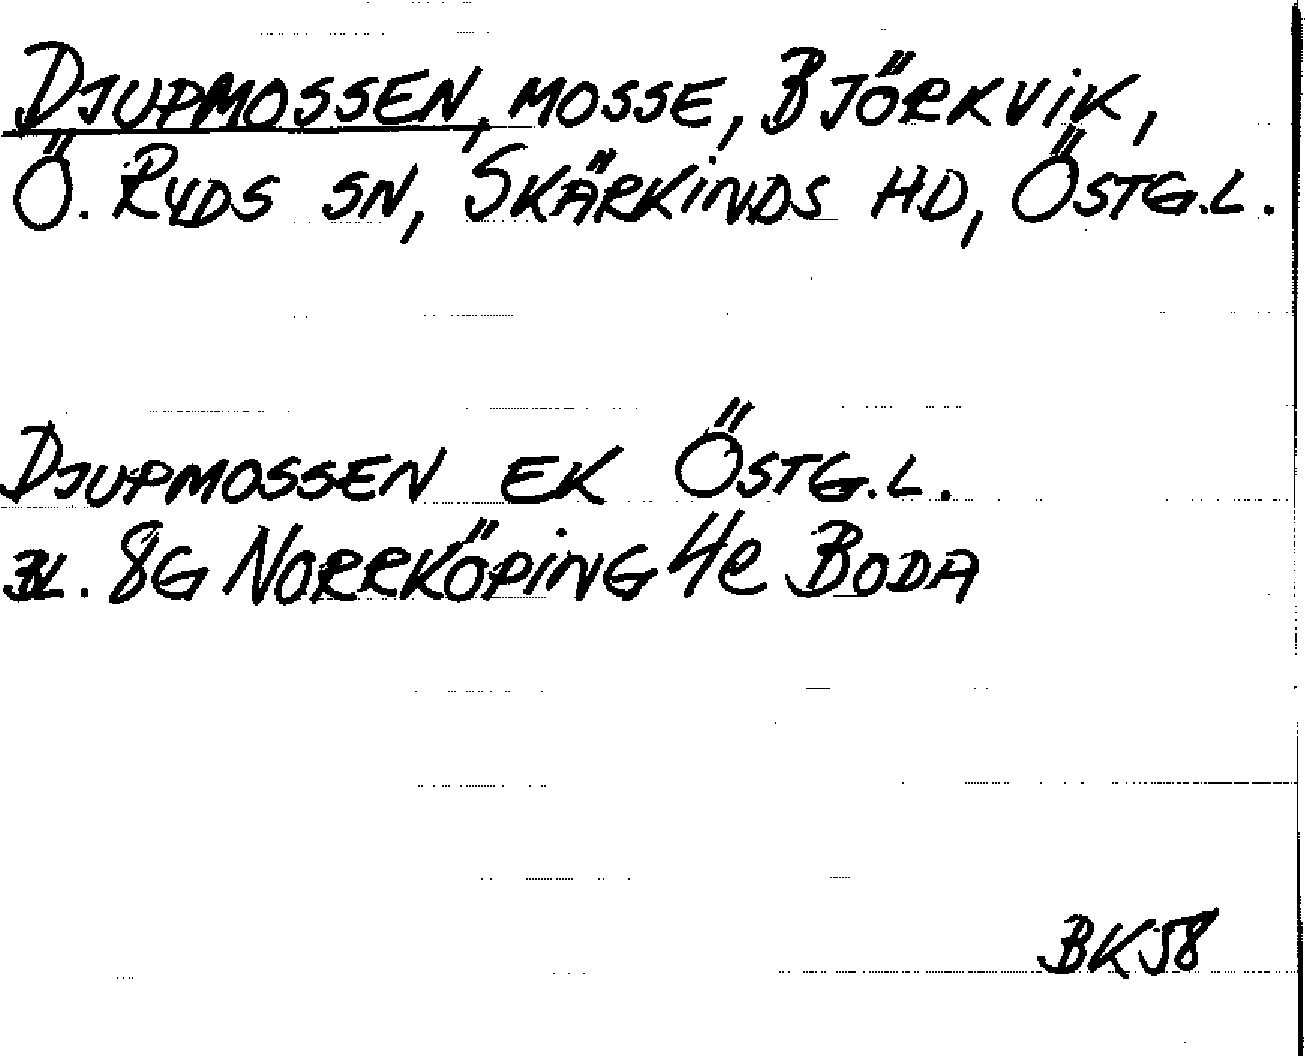 DJUPMOSSEN, MOSSE, BJÖRKVIK,
Ö. RYDS SN, SKÄRKINDS HD, ÖSTG.L.
DJUPMOSSEN EK ÖSTG.L.
BL. 8G NORRKÖPING 4e BODA
BK58